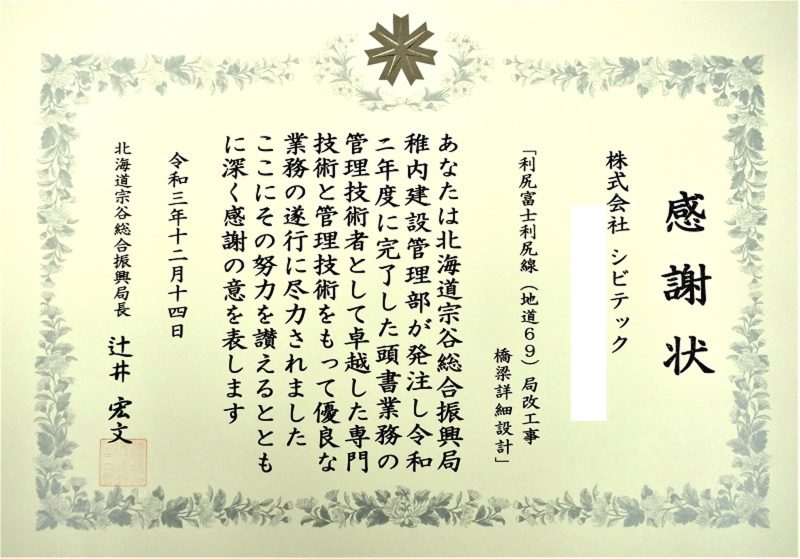 感謝状
株式会社 シビテック
「利尻富士利尻線（地道69）局改工事
橋梁詳細設計」
あなたは北海道宗谷総合振興局
稚内建設管理部が発注し令和
二年度に完了した頭書業務の
管理技術者として卓越した専門
技術と管理技術をもって優良な
業務の遂行に尽力されました
ここにその努力を讃えるととも
に深く感謝の意を表します
令和三年十二月十四日
北海道宗谷総合振興局長 辻井 宏文